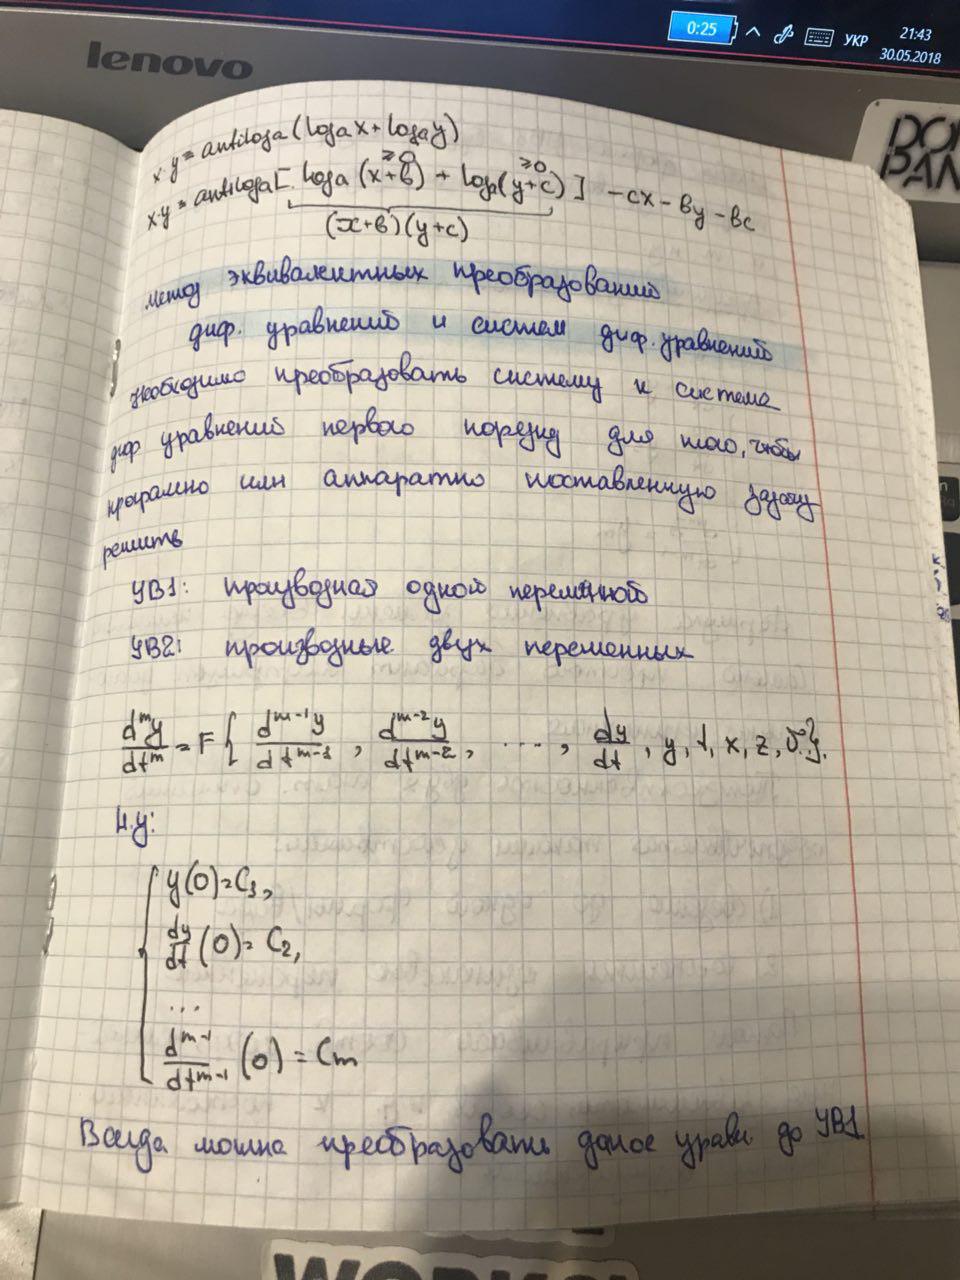 0:25 УКР 21:43
30.05.2018
lenovo
x·y = antiloga (loga x + loga y)
≥0 ≥0
x·y = antiloga [ loga (x+в) + log(y+c) ] - cx - вy - вc
(x+в)(y+c)
метод эквивалентных преобразований
диф. уравнений и систем диф. уравнений
Необходимо преобразовать систему к система
диф уравнений первого порезид для того, чтобы
програмно или аппаратно поставленную задачу
решить
УВ1: производная одной переменной
УВ2: производные двух переменных
d^m y / dt^m = F { d^(m-1) y / dt^(m-1) , d^(m-2) y / dt^(m-2) , ..., dy/dt , y, t, x, z, }.
Н.у:
y(0)=C1,
dy/dt (0) = C2,
...
d^(m-1) / dt^(m-1) (0) = Cm
Всегда можна преобразовать даное уравн до УВ1